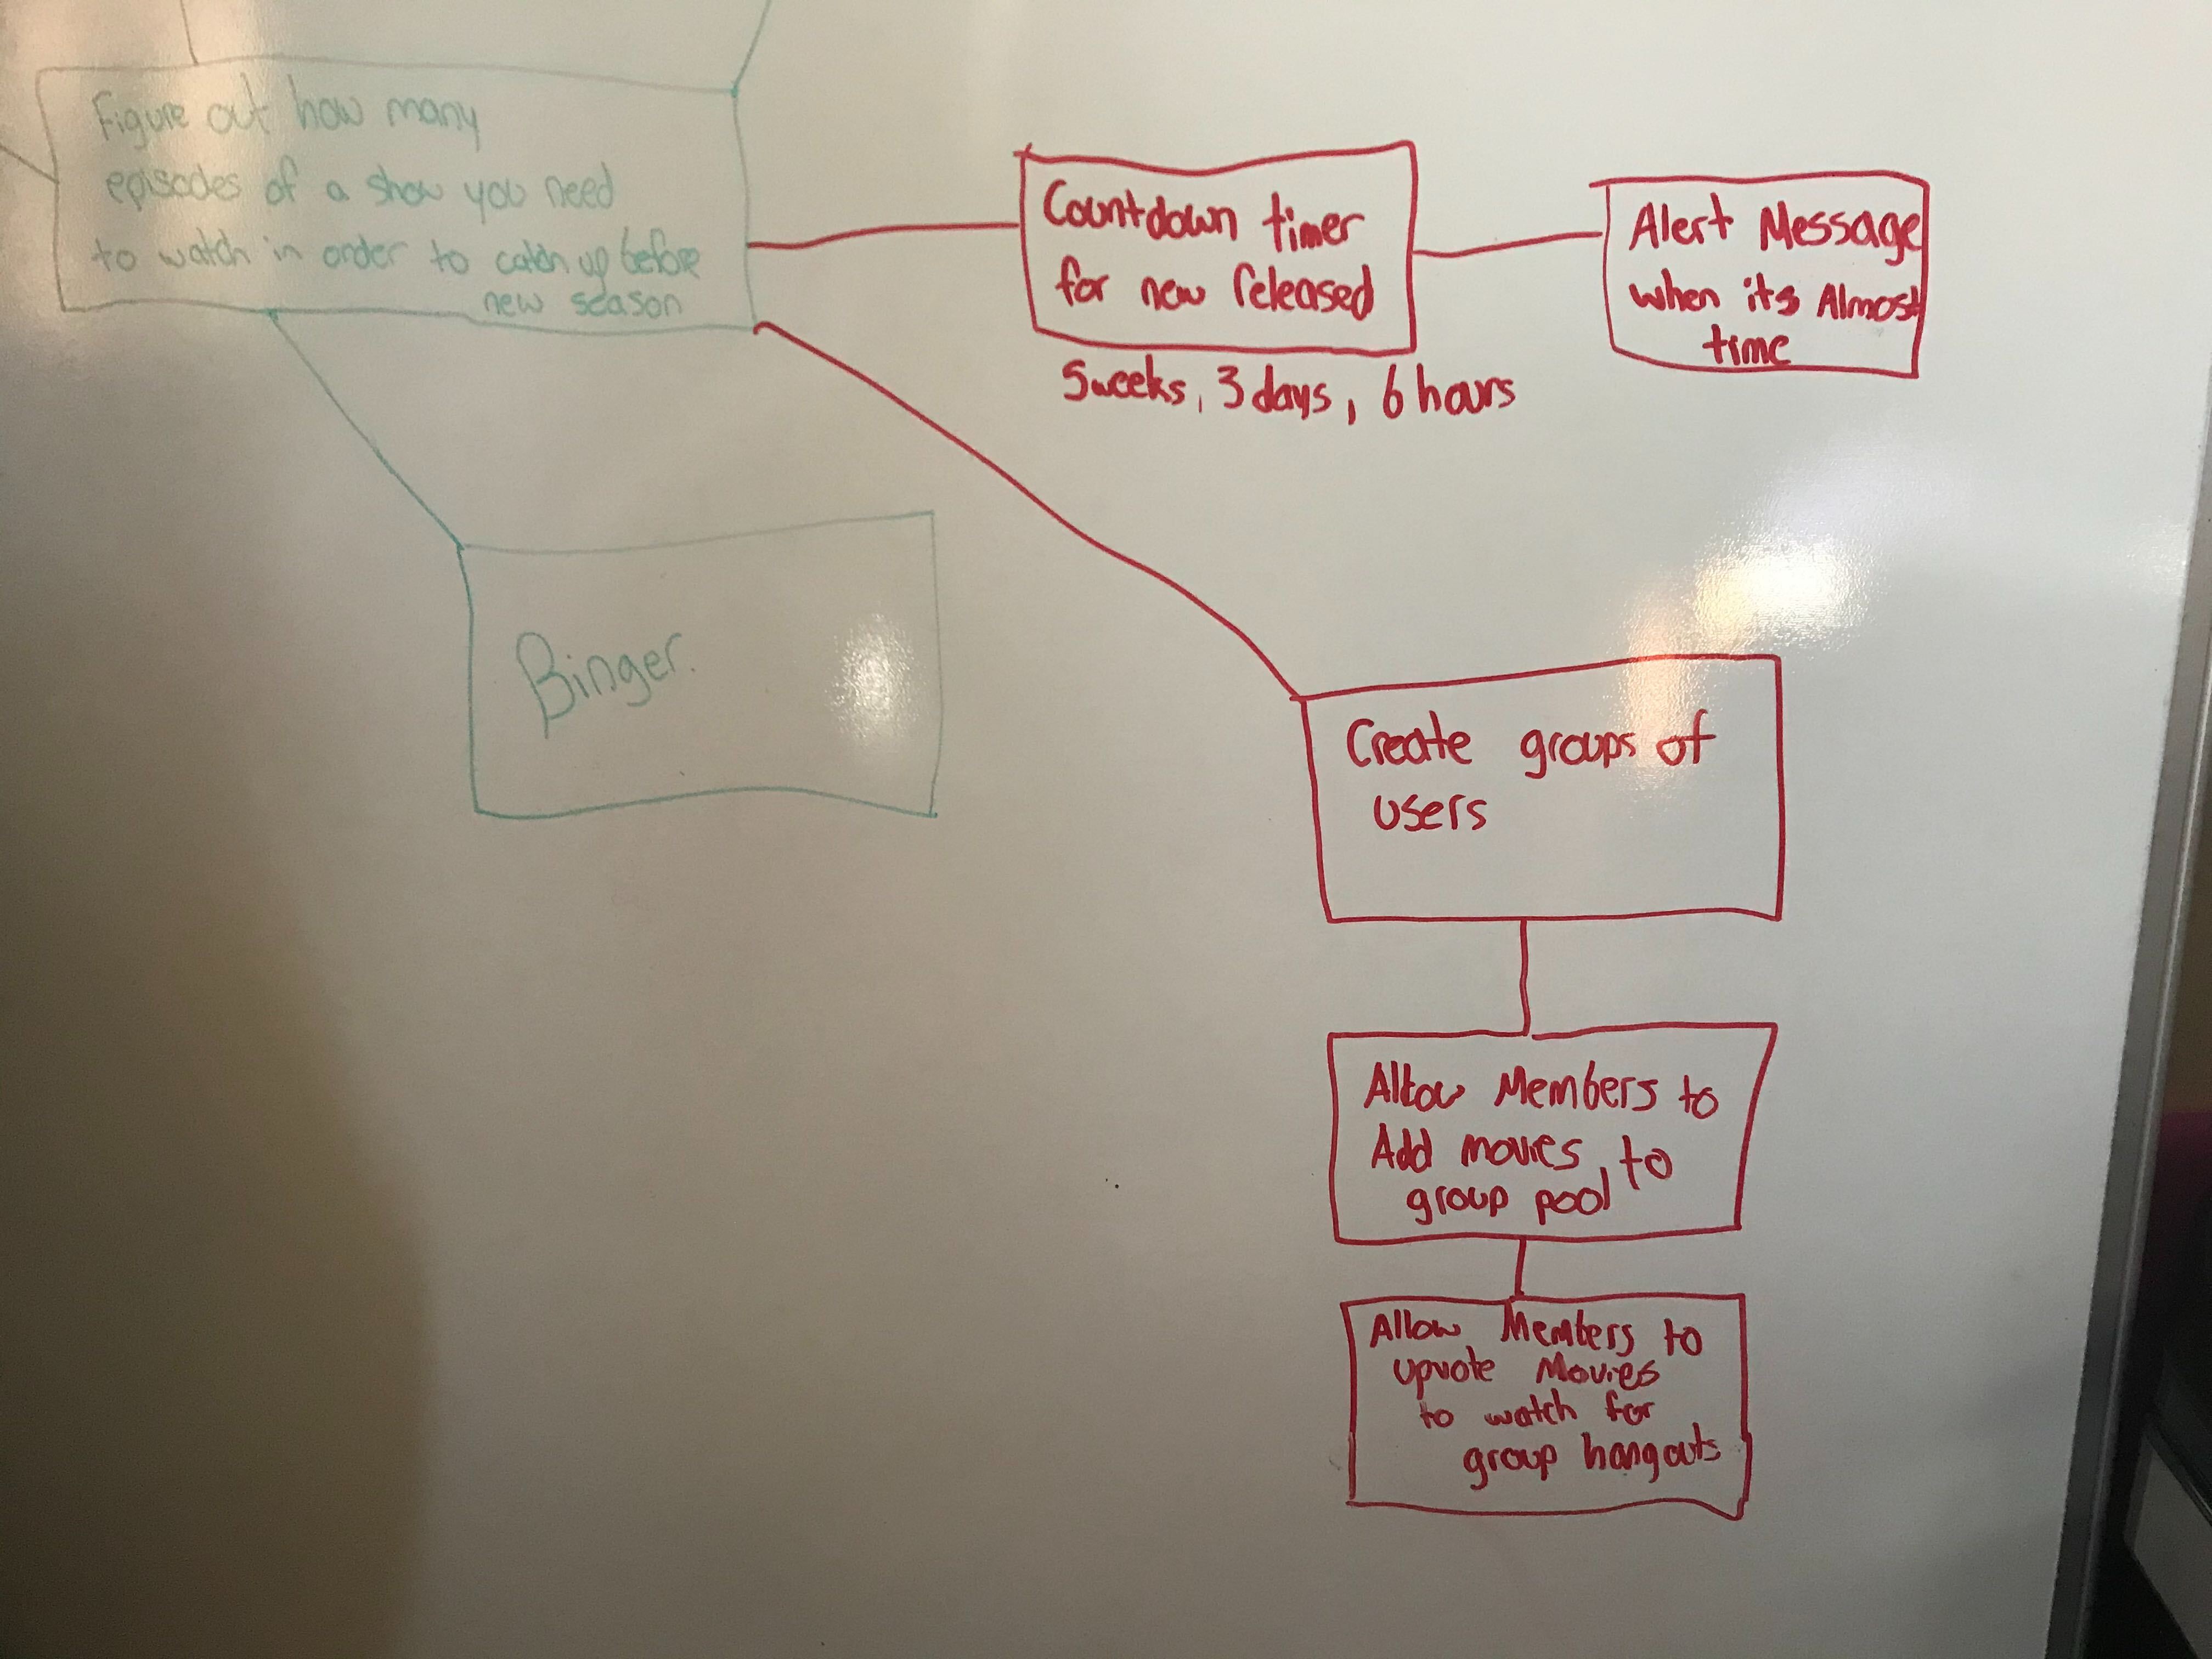 Figure out how many
episodes of a show you need
to watch in order to catch up before
new season
Countdown timer
for new released
5 weeks, 3 days, 6 hours
Alert Message
when its Almost
time
Binger.
Create groups of
users
Allow Members to
Add movies, to
group pool
Allow Members to
upvote Movies
to watch for
group hangouts